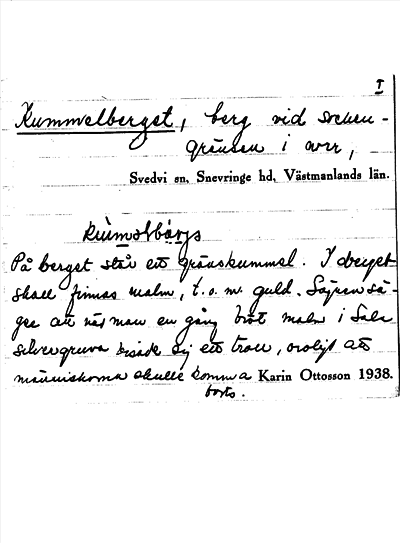 I
Kummelberget, berg vid socken-
gränsen i norr,
Svedvi sn, Snevringe hd, Västmanlands län.
På berget står ett gränskummel. I berget
skall finnas malm, t.o.m. guld. Sägnen sä-
ger att när man en gång bröt malm i Sala
silvergruva visade sig ett troll, oroligt att
människorna skulle komma Karin Ottosson 1938.
borts.